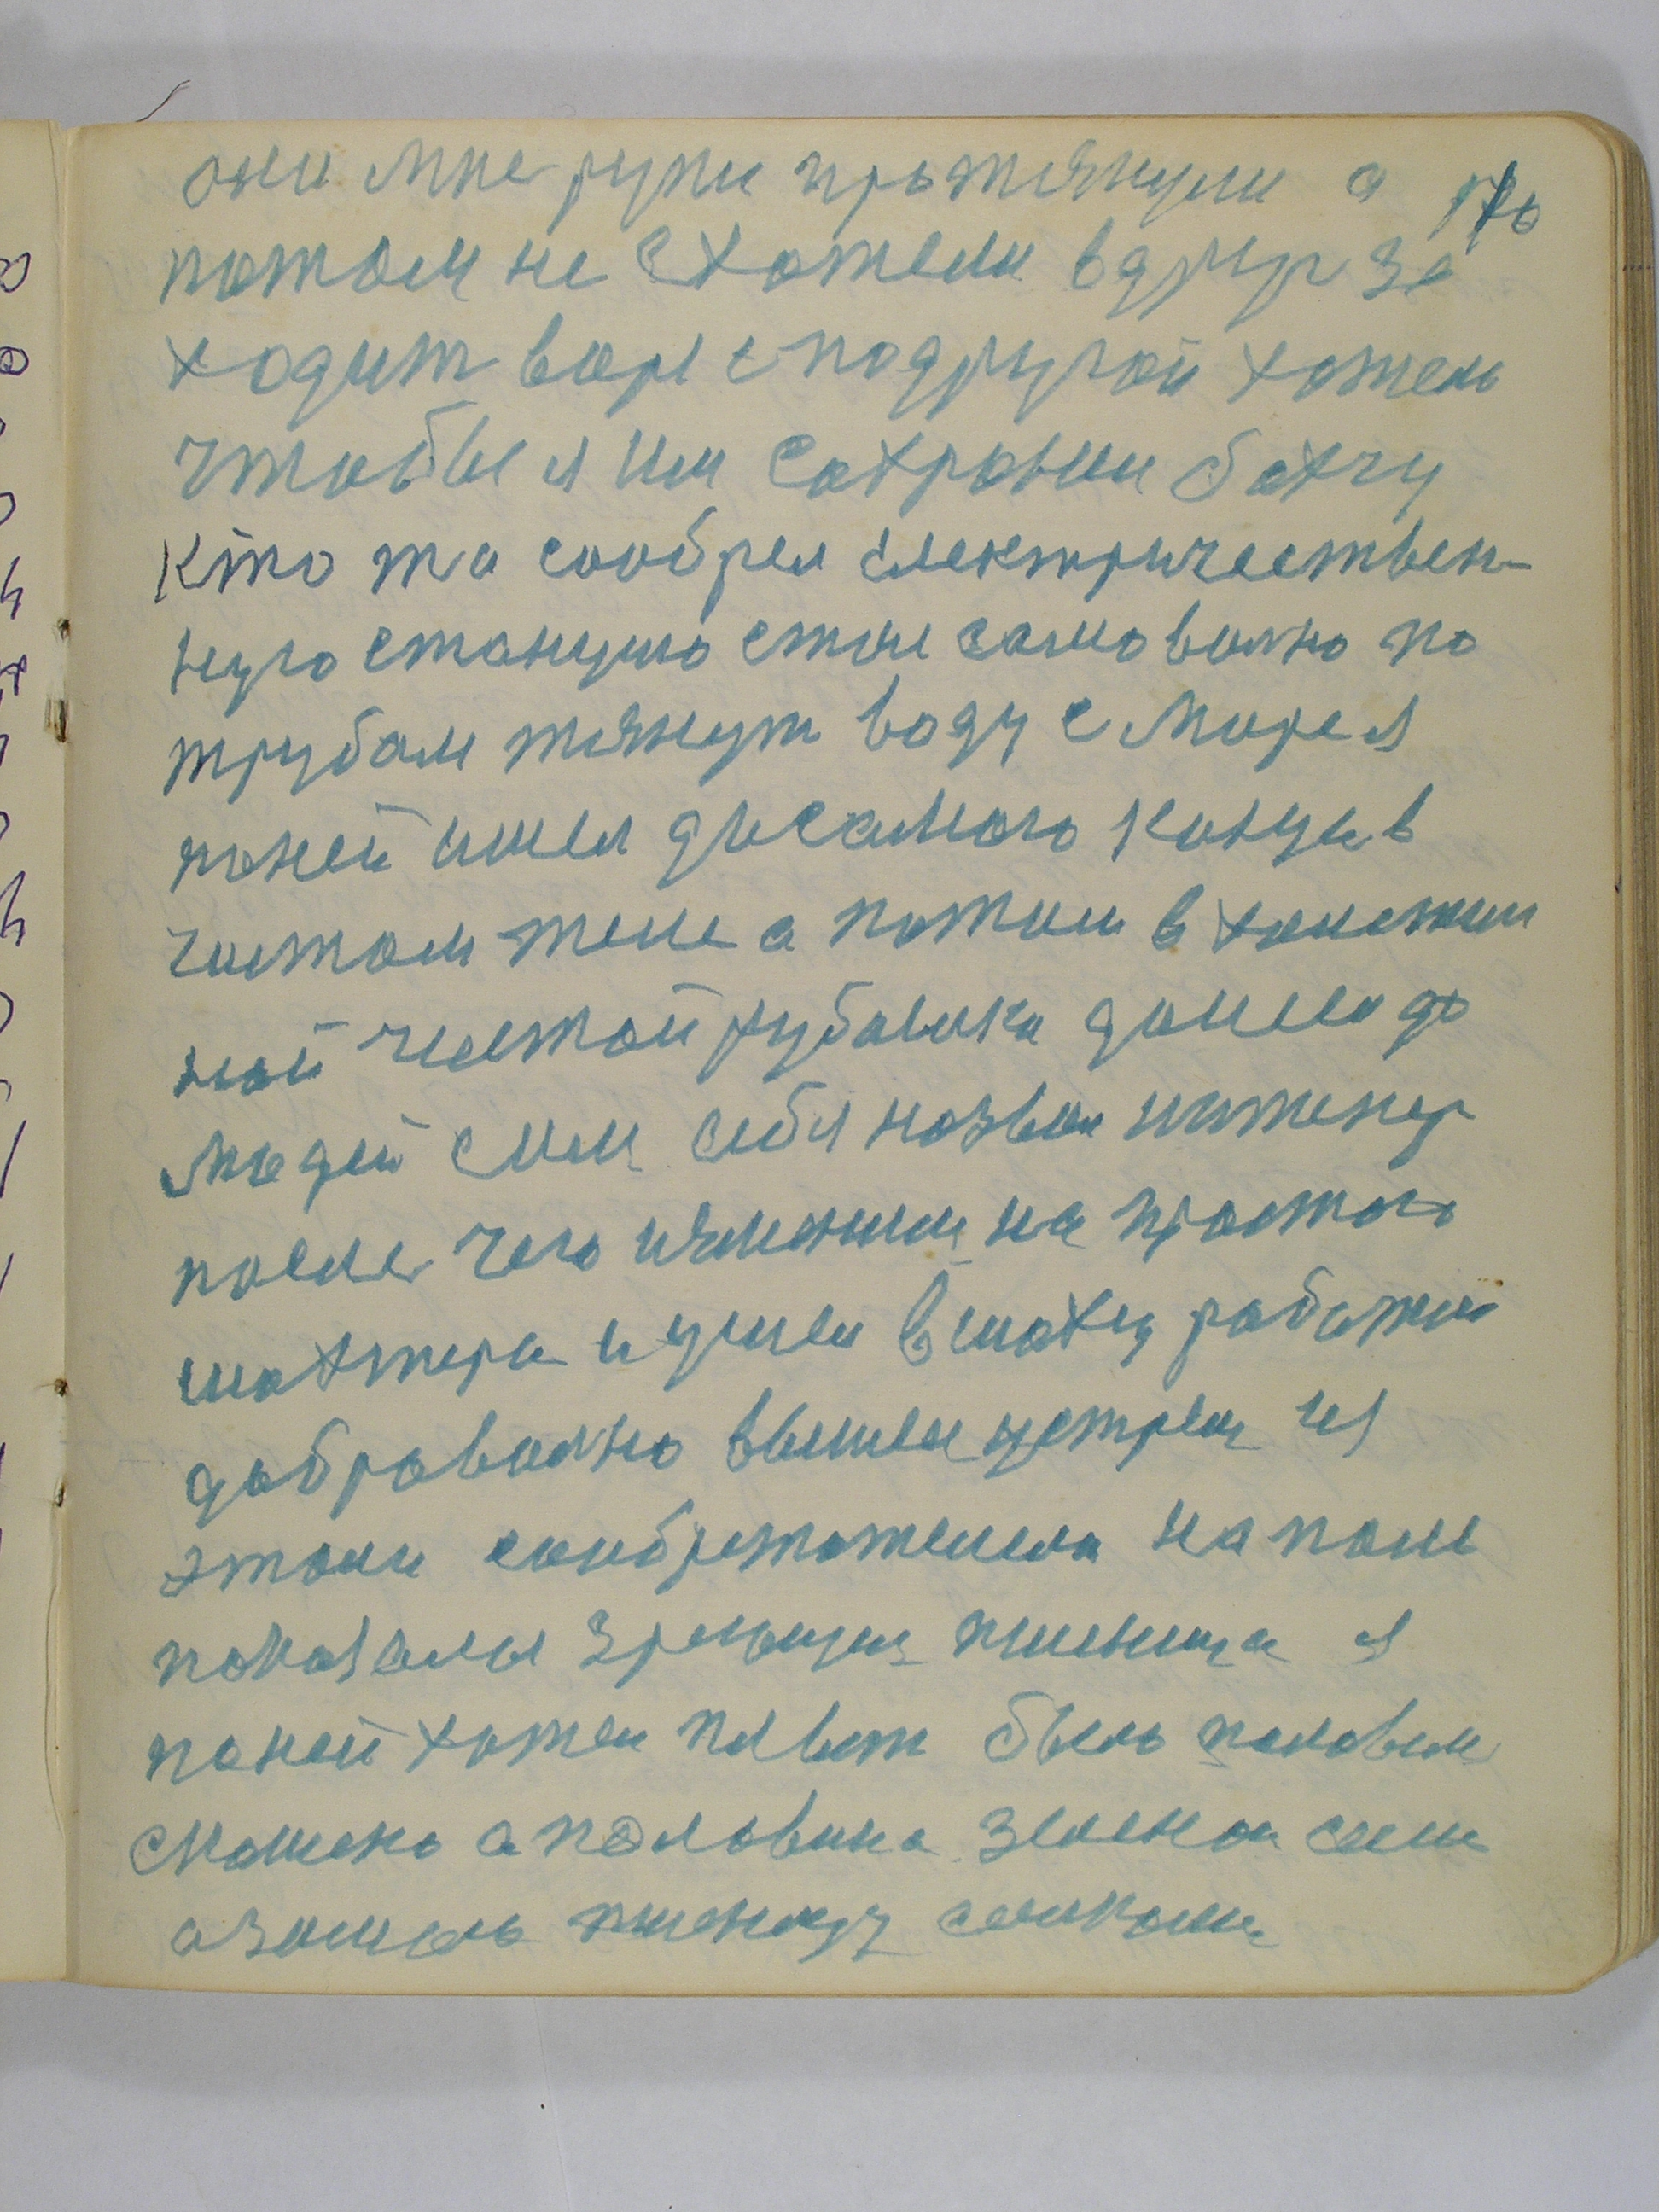 они мне руки протянули а 176
потом не схотели вдруг за
ходит вор с подругой хотель
чтобы я им сахранил бахчу
кто та сообрел електричествен-
ную станцию стал самовольно по
трубам тянут воду с моря я
поней ишел до самого конца в
чистом теле а потом в
ной чистой рубашки дошел до
людей сам себя назвал инженер
после чего изменил на простого
шахтера и ушел в шахту работат
добравольно вышел устрел из
этом сообретателем на поле
показалас зрелыция пшеница я
поней хотел плыт было половин
скошено а половина зеленои
озимою пшеницу